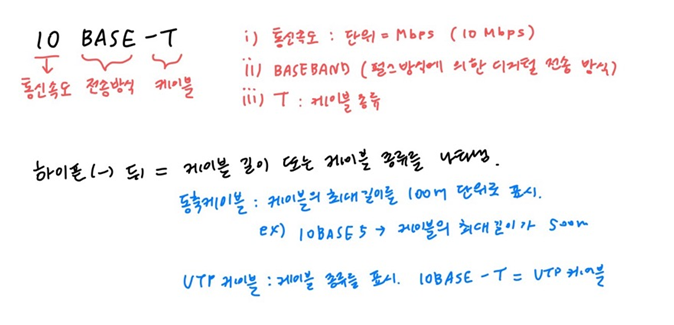 10 BASE -T
통신속도 전송방식 케이블
i) 통신속도 : 단위 = Mbps (10 Mbps)
ii) BASEBAND (펄스방식에 의한 디지털 전송 방식)
iii) T : 케이블 종류
하이픈(-) 뒤 = 케이블 길이 또는 케이블 종류를 나타냄.
동축케이블 : 케이블의 최대길이를 100m 단위로 표시.
ex) 10BASE5 → 케이블의 최대길이가 500m
UTP 케이블 : 케이블 종류를 표시. 10BASE -T = UTP 케이블